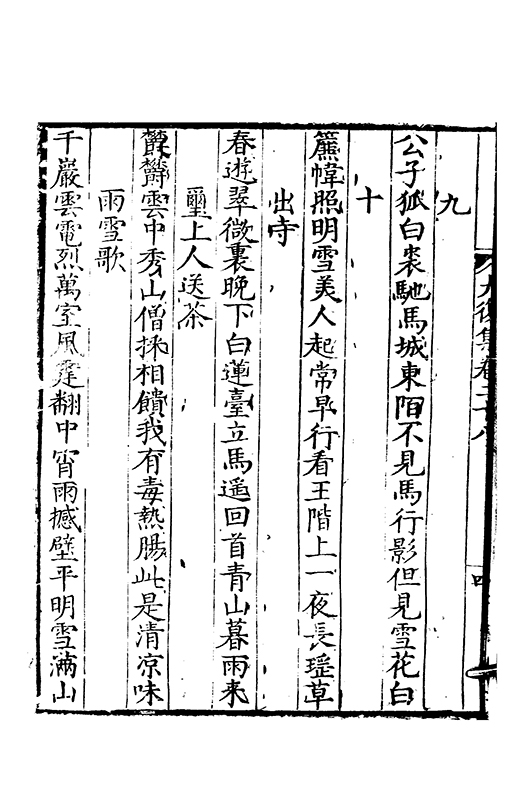 九
公子狐白裘馳馬城東陌不見馬行影但見雪花白
十
簾幃照明雪美人起常早行看玉階上一夜長瑶草
出寺
春遊翠微裏晚下白蓮臺立馬遥回首青山暮雨来
璽上人送茶
欝欝雲中秀山僧採相饋我有毒熱腸此是清凉味
雨雪歌
千巖雲電烈萬室風霆翻中宵雨撼壁平明雪滿山
集卷二十八
四